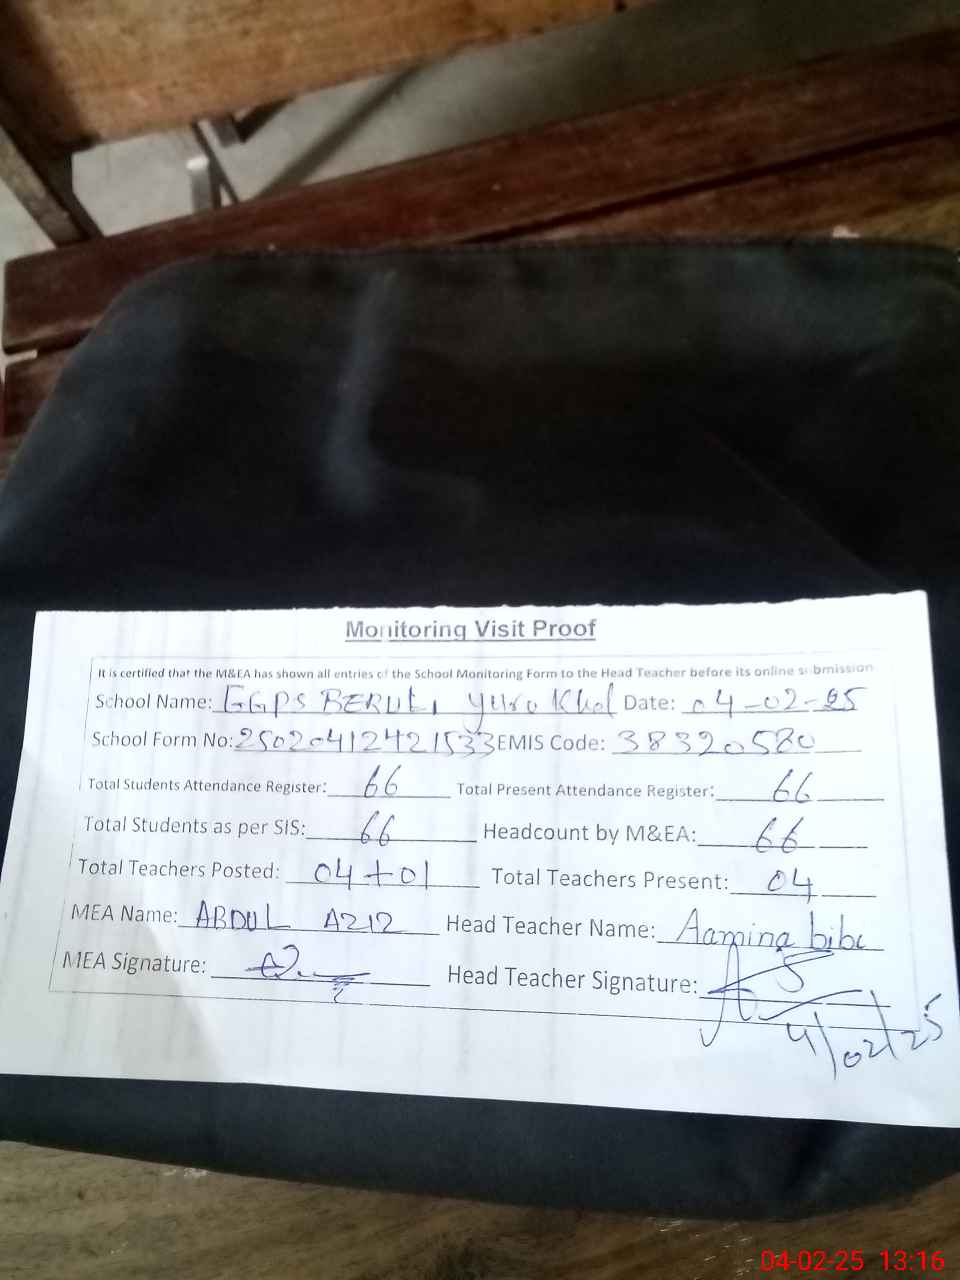 Monitoring Visit Proof
It is certified that the M&EA has shown all entries of the School Monitoring Form to the Head Teacher before its online submission
School Name: GGPS BERULI Date: 04-02-25
School Form No: 25020412421533 EMIS Code: 38320580
Total Students Attendance Register: 66 Total Present Attendance Register: 66
Total Students as per SIS: 66 Headcount by M&EA: 66
Total Teachers Posted: 04+01 Total Teachers Present: 04
MEA Name: ABDUL AZIZ Head Teacher Name: Aamina bibi
MEA Signature: Head Teacher Signature:
4/02/25
04-02-25 13:16